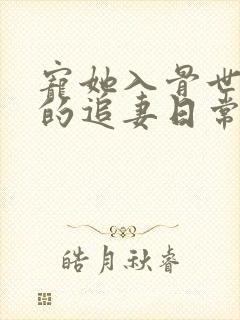 寵她入骨世
的追妻日常
皓月秋睿